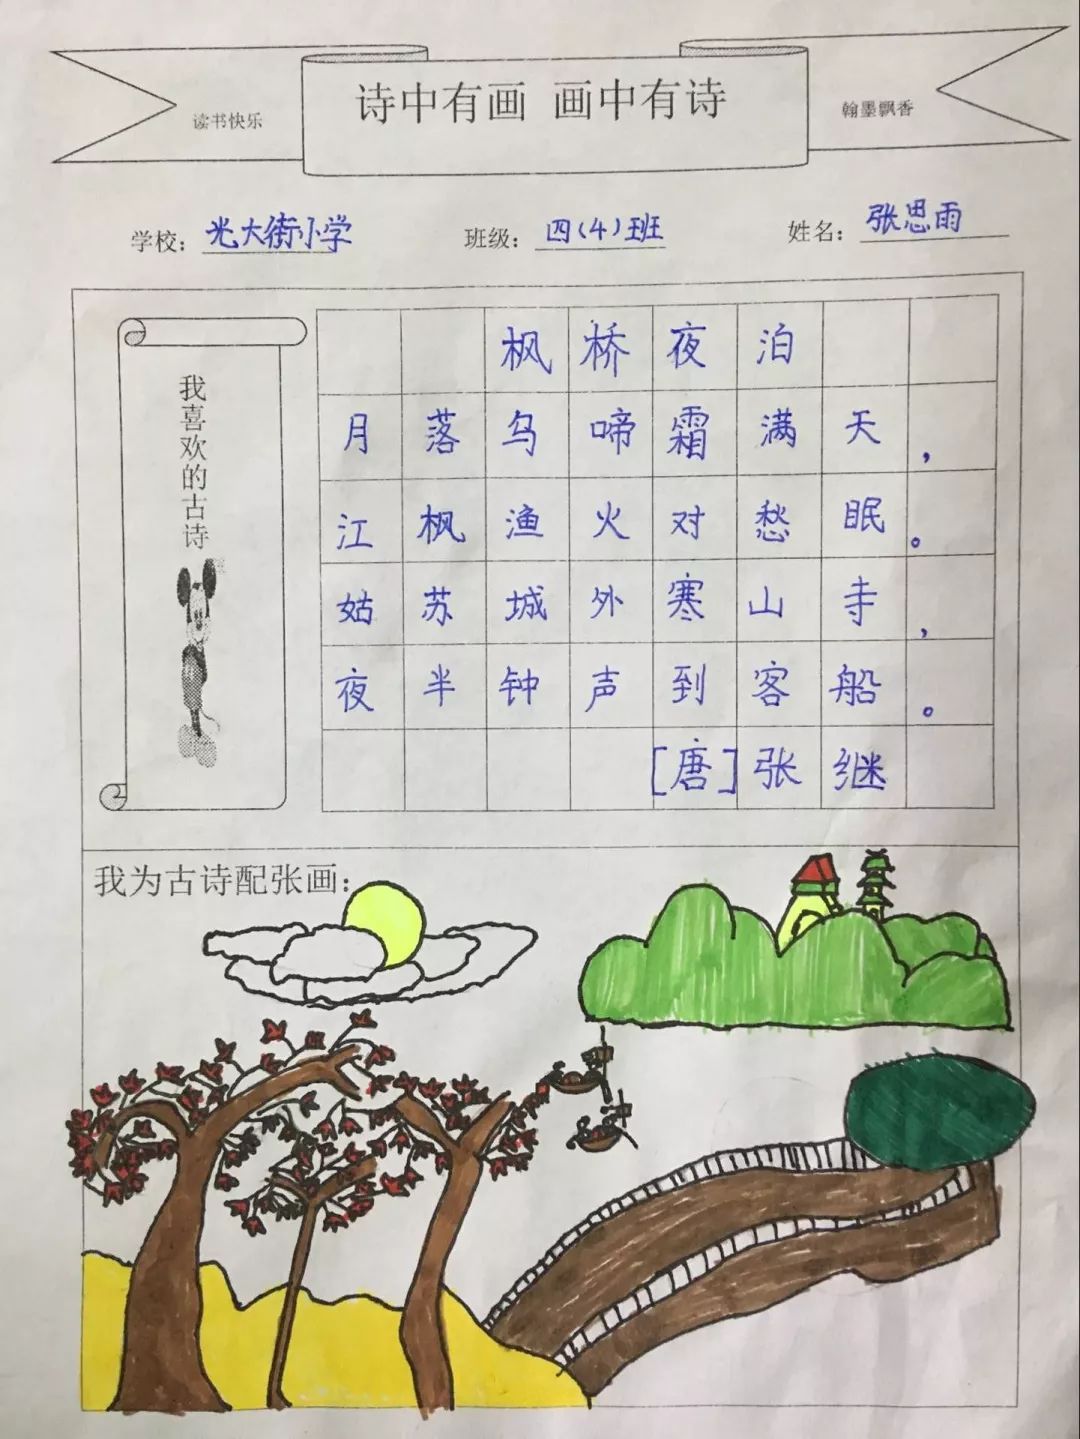 读书快乐
诗中有画 画中有诗
翰墨飘香
学校：光大街小学 班级：四(4)班 姓名：张思雨
我喜欢的古诗
枫桥夜泊
月落乌啼霜满天，
江枫渔火对愁眠。
姑苏城外寒山寺，
夜半钟声到客船。
[唐]张继
我为古诗配张画：